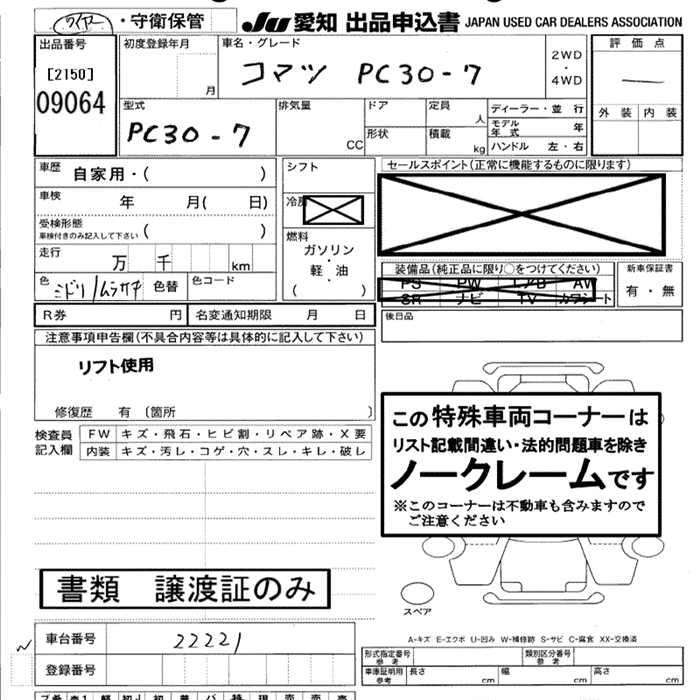 ・守衛保管 JU 愛知 出品申込書 JAPAN USED CAR DEALERS ASSOCIATION
出品番号 初度登録年月 車名・グレード 評価点
[2150] 月 コマツ PC30-7 2WD・4WD
09064 外装 内装
型式 排気量 ドア 定員 人 ディーラー・並行
PC30-7 CC 形状 積載 kg モデル年式 年
ハンドル 左・右
車歴 自家用・( ) シフト セールスポイント(正常に機能するものに限ります)
車検 年 月( 日)
受検形態
車検付きのみ記入して下さい ( ) 燃料
走行 万 千 km ガソリン・軽・油
( )
装備品(純正品に限り○をつけてください) 新車保証書
色 ミドリ/ムラサキ 色替 色コード PS PW エアB AW 有・無
SR ナビ TV カワシート
R券 円 名変通知期限 月 日 後日品
注意事項申告欄(不具合内容等は具体的に記入して下さい)
リフト使用
修復歴 有 〔箇所 〕
検査員記入欄 FW キズ・飛石・ヒビ割・リペア跡・X要
内装 キズ・汚レ・コゲ・穴・スレ・キレ・破レ
この特殊車両コーナーは
リスト記載間違い・法的問題車を除き
ノークレームです
※このコーナーは不動車も含みますので
ご注意ください
書類 譲渡証のみ
スペア
車台番号 22221
登録番号
A-キズ E-エクボ U-凹み W-補修跡 S-サビ C-腐食 XX-交換済
形式指定番号 参考 類別区分番号 参考
車庫証明用 参考 長さ cm 幅 cm 高さ cm